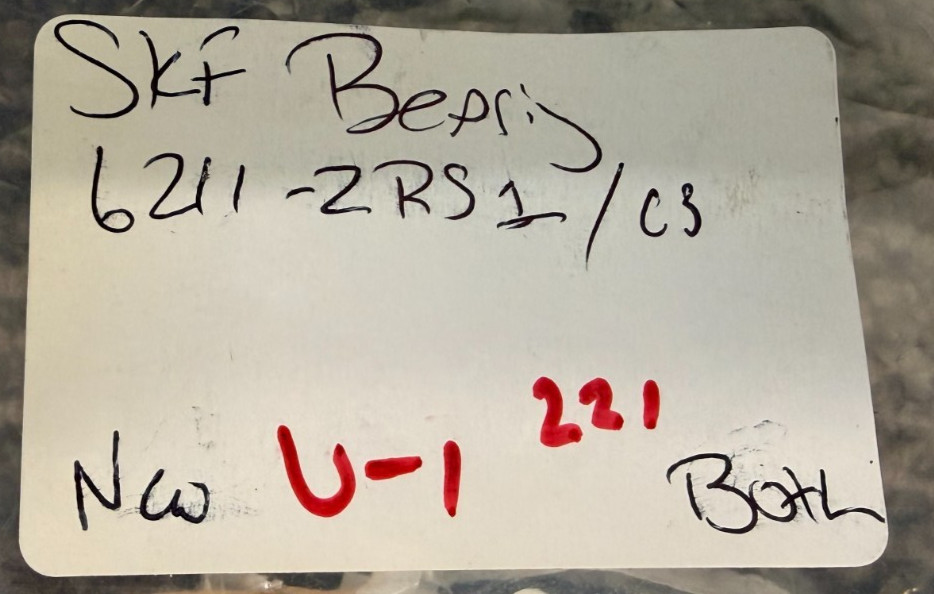 SKF Bearing
6211-2RS1/C3
221
New U-1 Both